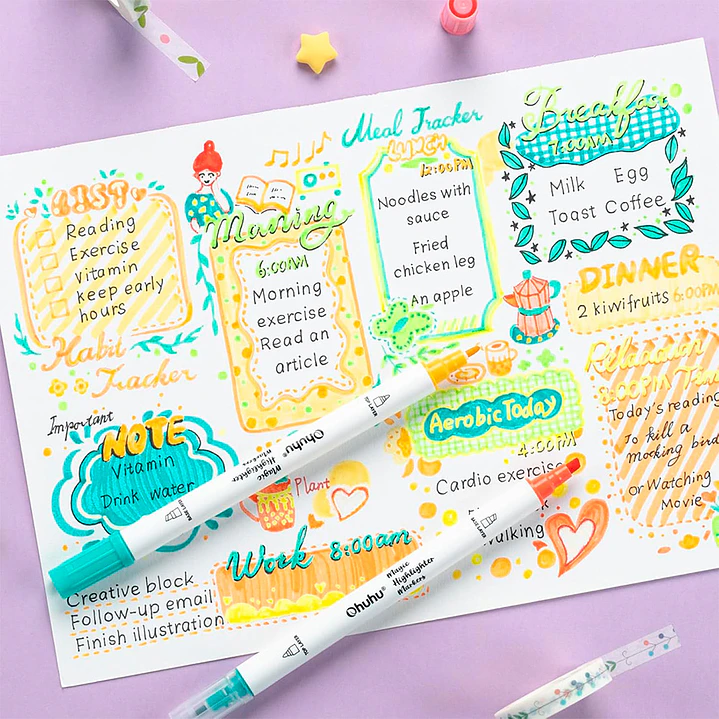 LIST
Reading
Exercise
Vitamin
keep early
hours
Habit
Tracker
Morning
6:00AM
Morning
exercise
Read an
article
Meal Tracker
LUNCH
12:00PM
Noodles with
sauce
Fried
chicken leg
An apple
Breakfast
7:00AM
Milk Egg
Toast Coffee
DINNER
2 kiwifruits 6:00PM
Relaxation
8:00PM Time
Today's reading
To kill a
mocking bird
or Watching
Movie
Important
NOTE
Vitamin
Drink water
Plant
Aerobic Today
4:00PM
Cardio exercise
walking
Work 8:00am
Creative block
Follow-up email
Finish illustration
Ohuhu®
Magic
Highlighter
Markers
BASE LAYER
Ohuhu®
Magic
Highlighter
Markers
TOP LAYER